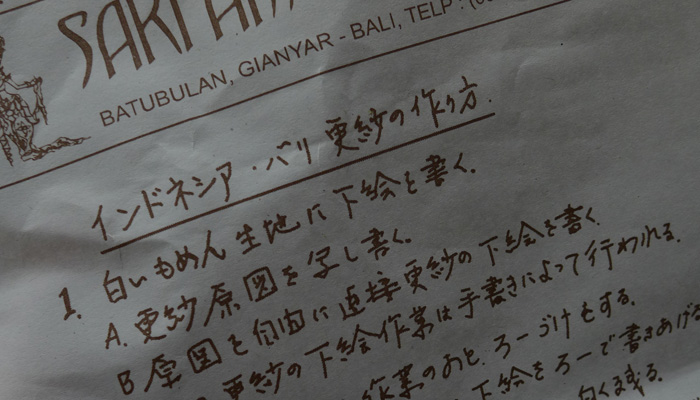 SARI
BATUBULAN, GIANYAR - BALI, TELP : (0
インドネシア・バリ 更紗の作り方.
1. 白いもめん生地に下絵を書く.
A. 更紗原図を写し書く.
B 原図を自由に直接更紗の下絵を書く
更紗の下絵作業は手書きによって行われる.
作業のあと、ローづけをする.
下絵をローで書きあげる
白く残る.